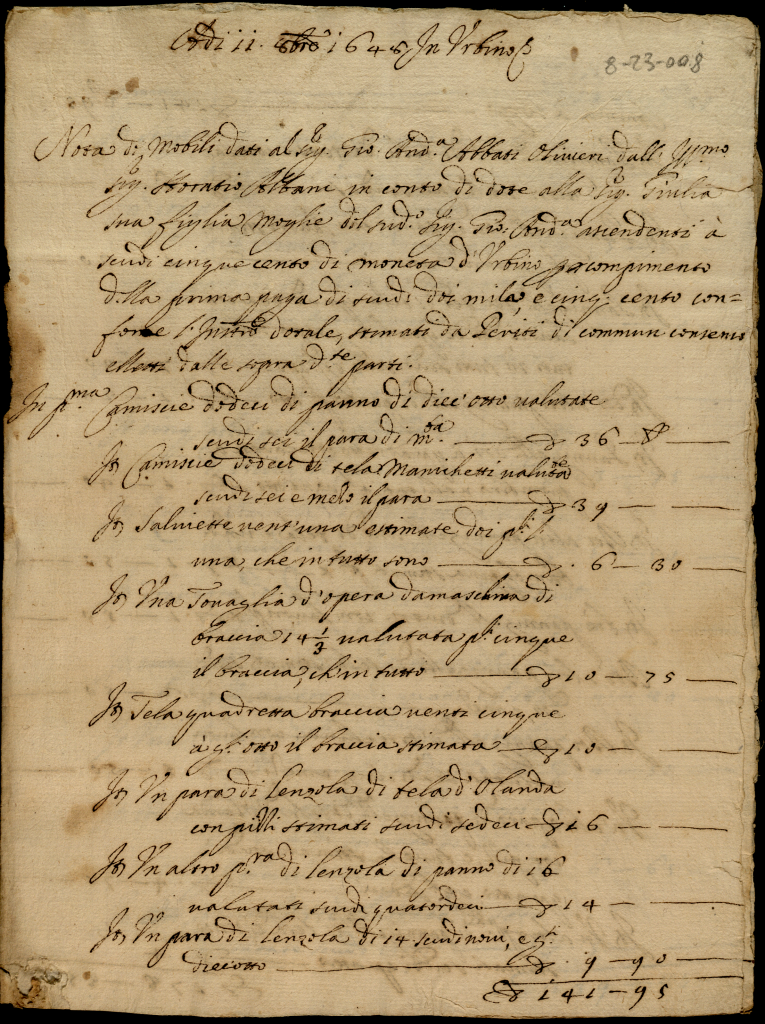 Adi 11. 8bre 1648 In Urbino
8-23-008
Nota di Mobili dati al Sig.r Gio. And.a Abbati Olivieri dall' Ill.mo
Sig. Horatio Albani in conto di dote alla Sig.ra Giulia
sua figlia moglie del sud.o Sig. Gio: And.a ascendenti à
scudi cinque cento di moneta d'Urbino per compimento
della prima paga di scudi doi milà, e cinq. cento con=
forme l'Instro dotale, stimati da Periti di commun consenso
eletti dalle sopra d.te parti.
In p.ma Camiscie dodeci di panno di dieci otto valutate
scudi sei il para di m.ta 36
It. Camiscie dodeci di tela Manichetti valutate
scudi sei e mezo il para 39
It. Salviette vent'una estimate doi p.li l'
una, che in tutto sono 6 – 30
It. Una Tovaglia d'opera damaschina di
braccia 14 1/3 valutata p.li cinque
il braccia, ch'in tutto 10 – 75
It. Tela quadretta braccia venti cinque
à g.li otto il braccia stimata 10
It. Un para di Lenzola di tela d'Olanda
con pilli stimati scudi sedeci 16
It. Un altro p.ra di lenzola di panno di 16
valutati scudi quatordeci 14
It. Un para di Lenzola di 14 scudi novi, e g.li
dieciotto 9 – 90
141 – 95